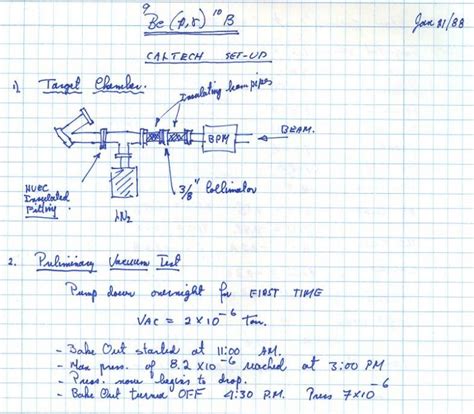 ⁹Be (p,γ) ¹⁰B
Jan 21/88
CALTECH SET-UP
1) Target Chamber.
Insulating beam pipes
BPM
BEAM.
HUEC
Insulated
Fitting
3/8" Collimator
LN2
2. Preliminary Vacuum Test
Pump down overnight for FIRST TIME
VAC = 2 x 10⁻⁶ Torr.
- Bake Out started at 11:00 AM.
- Max press. of 8.2 x10⁻⁶ reached at 3:00 PM
- Press. now begins to drop.
- Bake Out turned OFF 4:30 P.M. Press 7x10⁻⁶